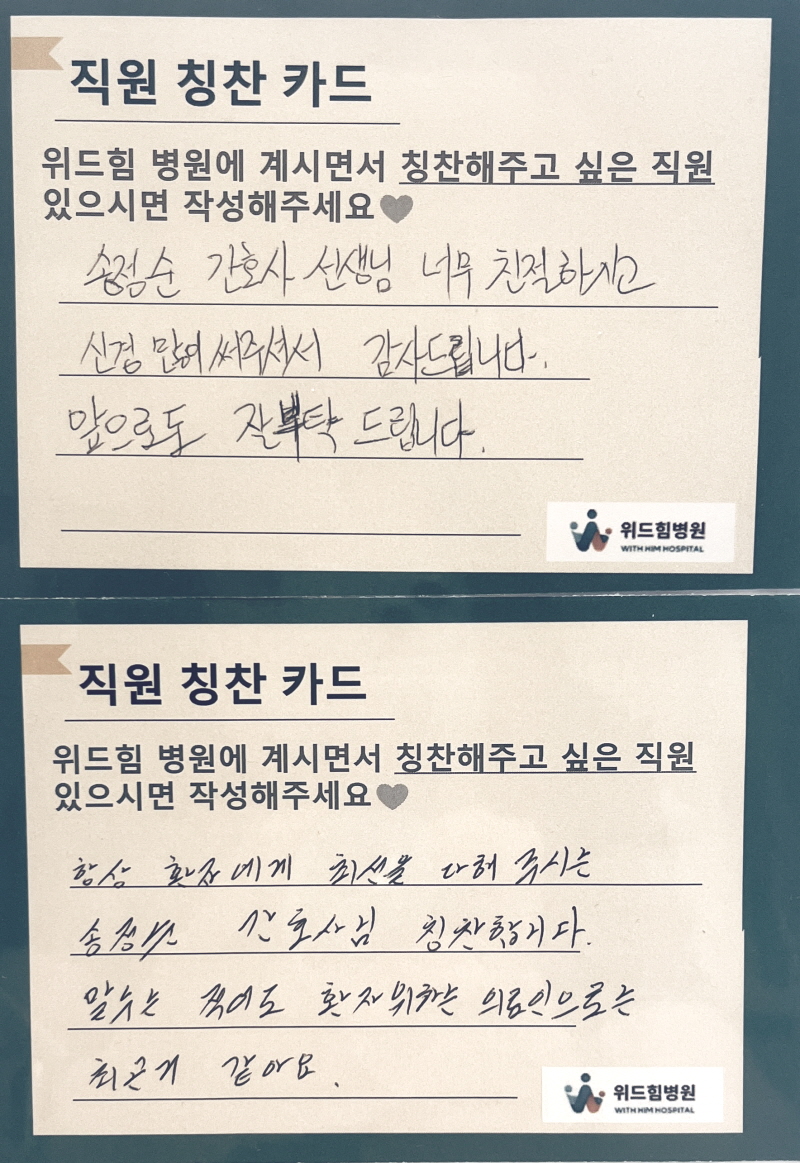 직원 칭찬 카드
위드힘 병원에 계시면서 칭찬해주고 싶은 직원
있으시면 작성해주세요
송정순 간호사 선생님 너무 친절하시고
신경 많이 써주셔서 감사드립니다.
앞으로도 잘 부탁 드립니다.
위드힘병원
WITH HIM HOSPITAL
직원 칭찬 카드
위드힘 병원에 계시면서 칭찬해주고 싶은 직원
있으시면 작성해주세요
항상 환자에게 최선을 다해 주시는
송정순 간호사님 칭찬합니다.
말수는 적어도 환자위하는 의료인으로는
최고인거 같아요.
위드힘병원
WITH HIM HOSPITAL